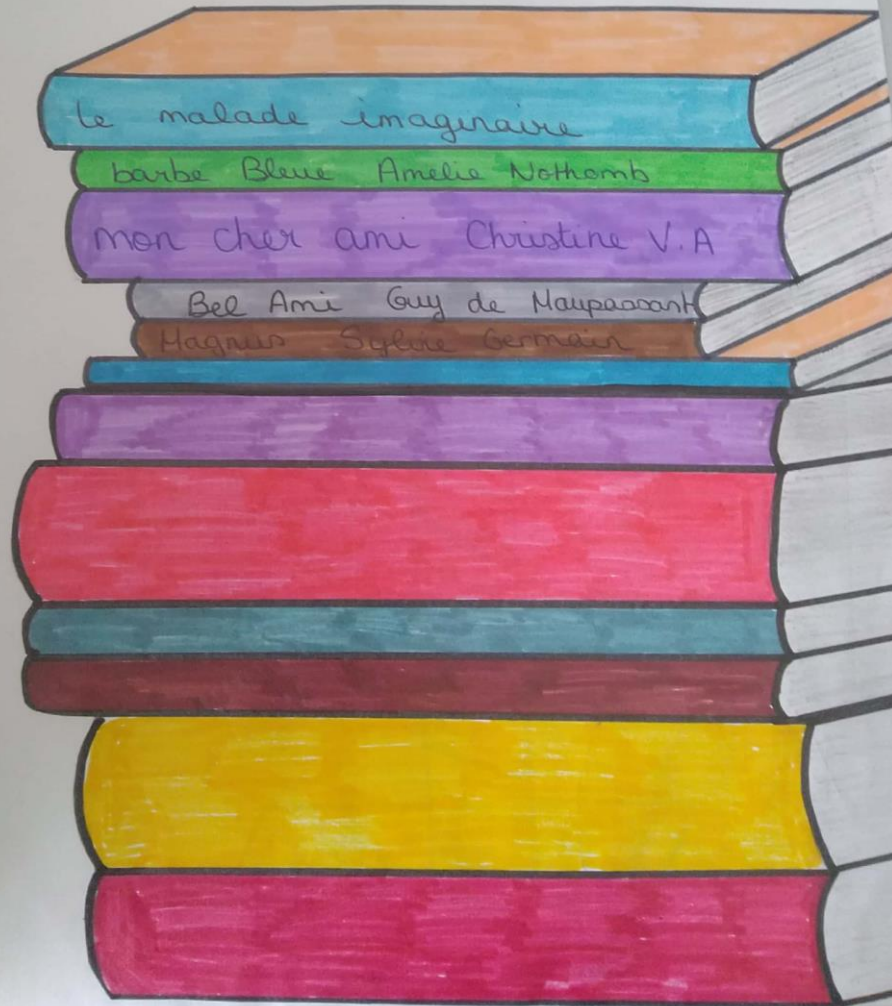 le malade imaginaire
barbe Bleue Amelie Nothomb
mon cher ami Christine V.A
Bel Ami Guy de Maupassant
Magnus Sylvie Germain